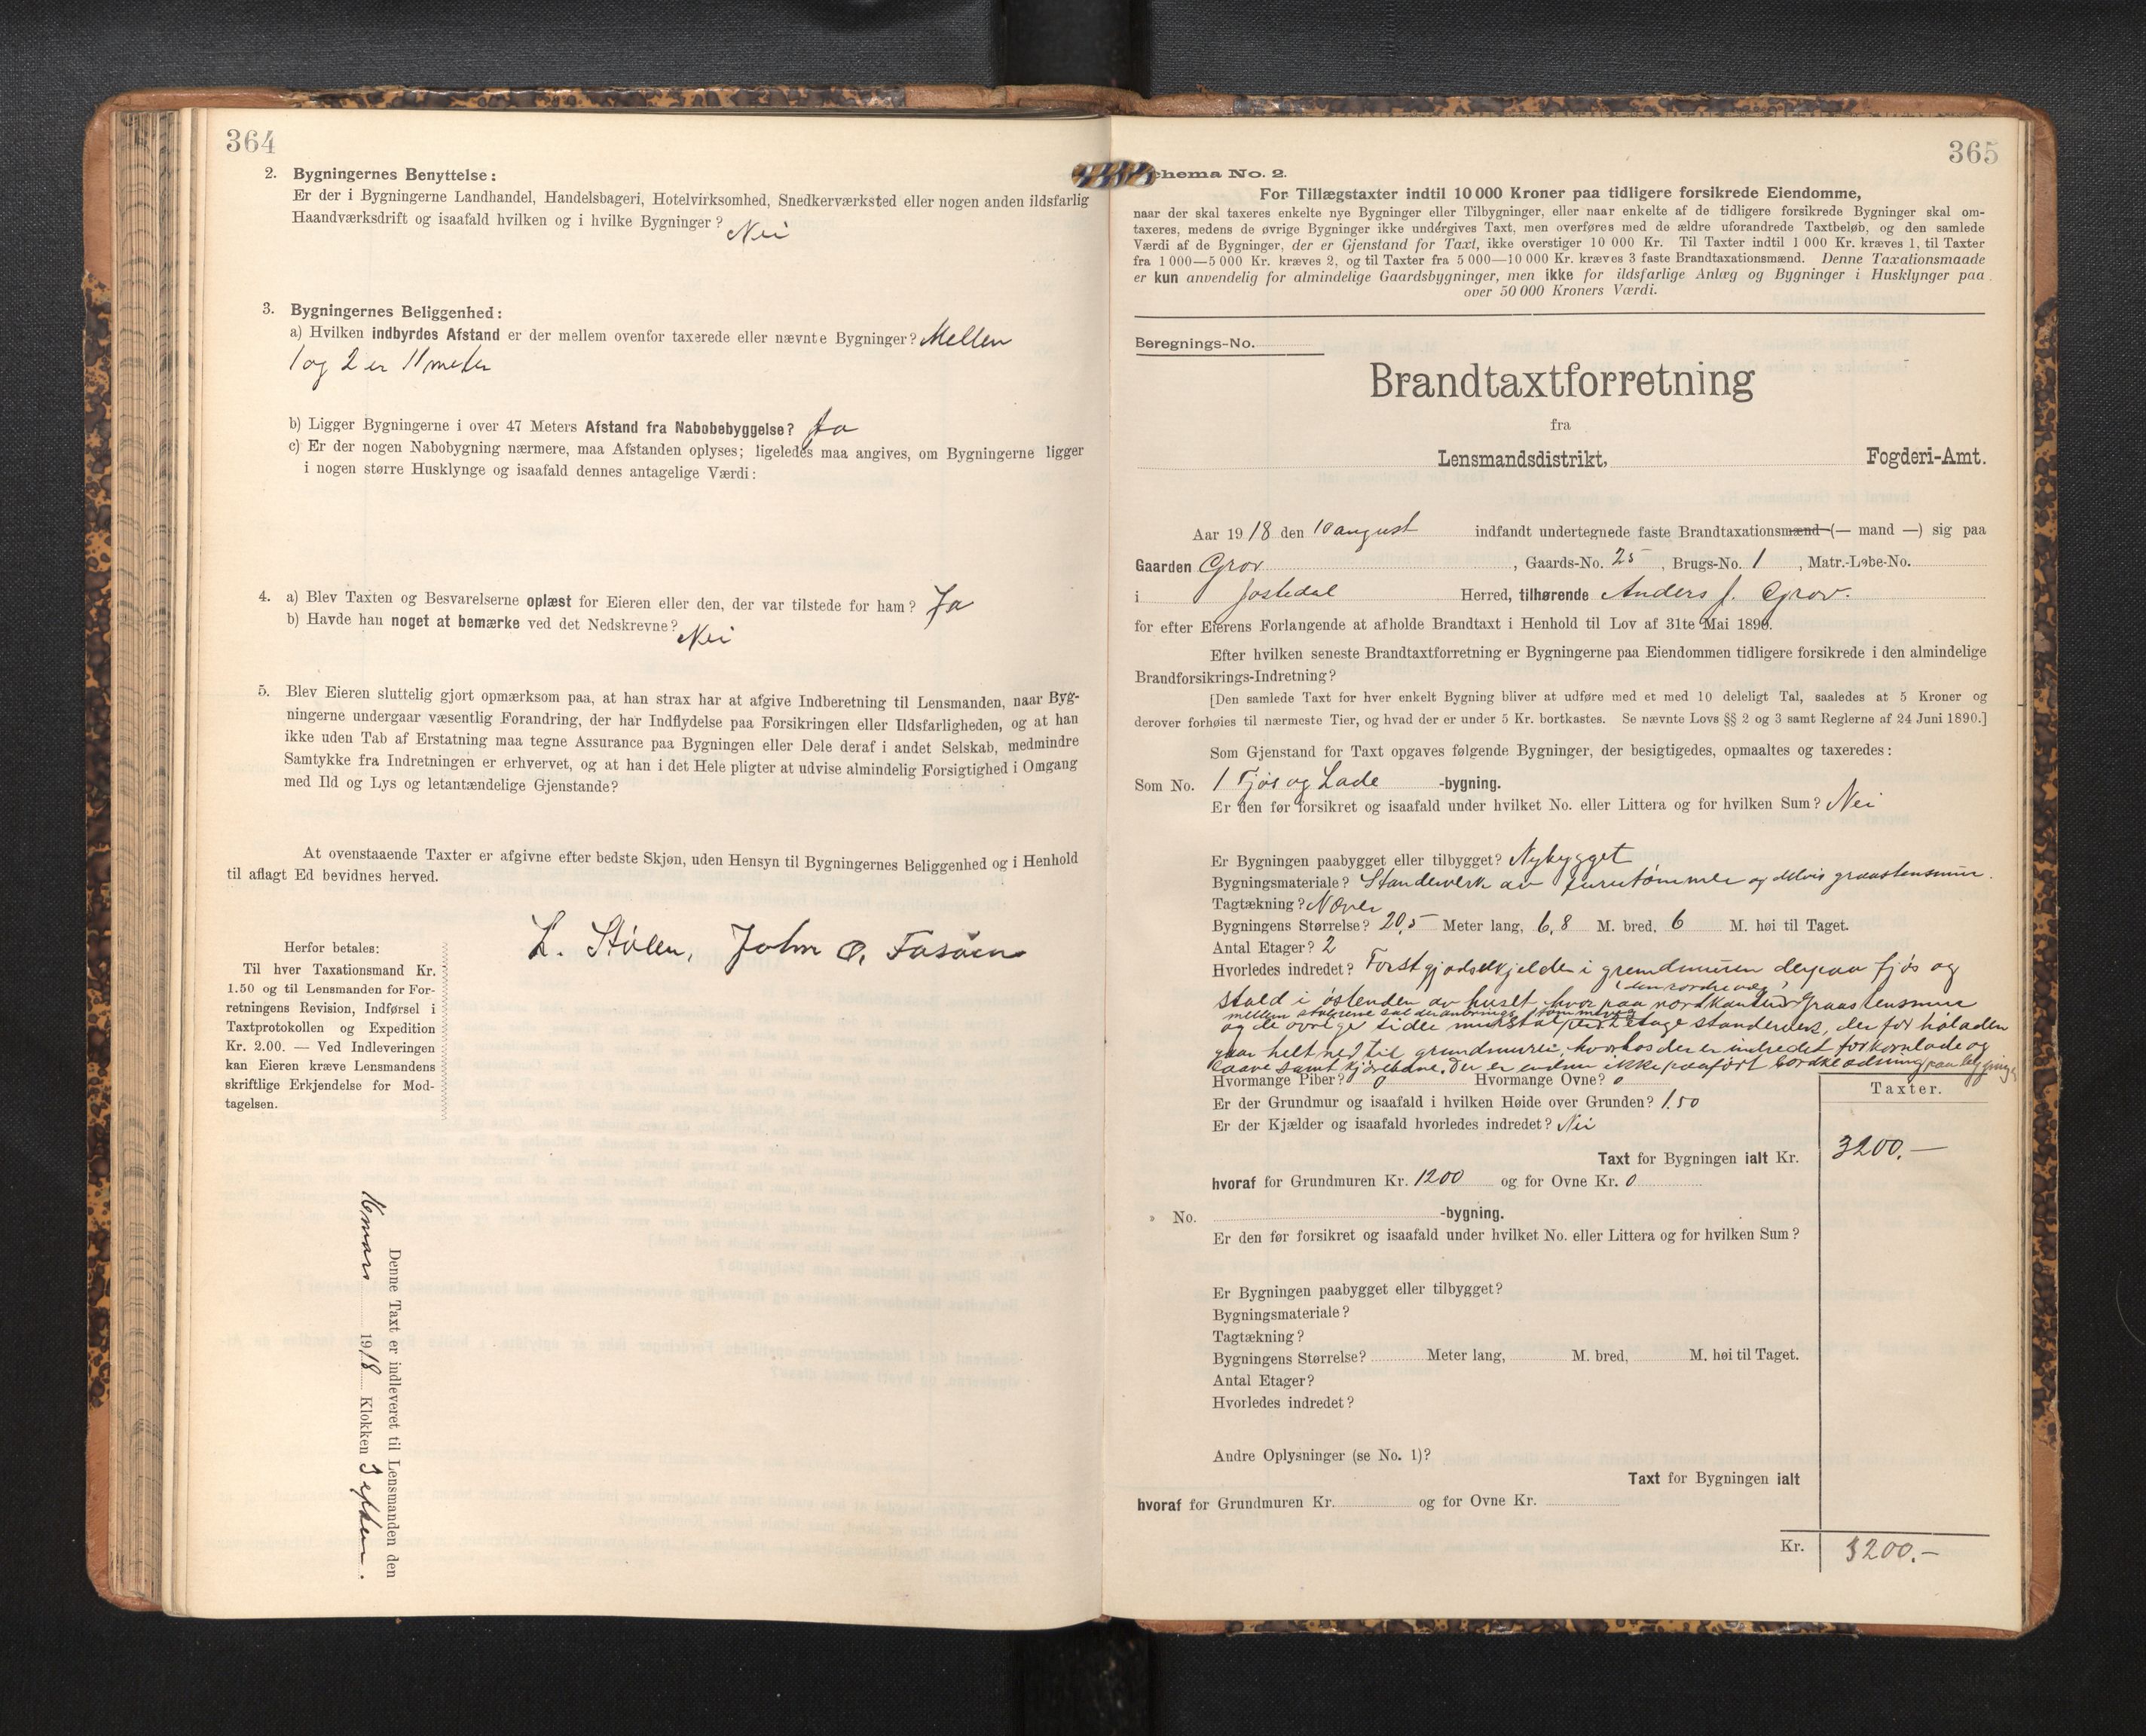 364
2. Bygningernes Benyttelse:
Er der i Bygningerne Landhandel, Handelsbageri, Hotelvirksomhed, Snedkerværksted eller nogen anden ildsfarlig
Haandværksdrift og isaafald hvilken og i hvilke Bygninger? Nei
3. Bygningernes Beliggenhed:
a) Hvilken indbyrdes Afstand er der mellem ovenfor taxerede eller nævnte Bygninger? Mellem
1 og 2 er 11 meter
b) Ligger Bygningerne i over 47 Meters Afstand fra Nabobebyggelse? Ja
c) Er der nogen Nabobygning nærmere, maa Afstanden oplyses; ligeledes maa angives, om Bygningerne ligger
i nogen større Husklynge og isaafald dennes antagelige Værdi:
4. a) Blev Taxten og Besvarelserne oplæst for Eieren eller den, der var tilstede for ham? Ja
b) Havde han noget at bemærke ved det Nedskrevne? Nei
5. Blev Eieren sluttelig gjort opmærksom paa, at han strax har at afgive Indberetning til Lensmanden, naar Byg-
ningerne undergaar væsentlig Forandring, der har Indflydelse paa Forsikringen eller Ildsfarligheden, og at han
ikke uden Tab af Erstatning maa tegne Assurance paa Bygningen eller Dele deraf i andet Selskab, medmindre
Samtykke fra Indretningen er erhvervet, og at han i det Hele pligter at udvise almindelig Forsigtighed i Omgang
med Ild og Lys og letantændelige Gjenstande?
At ovenstaaende Taxter er afgivne efter bedste Skjøn, uden Hensyn til Bygningernes Beliggenhed og i Henhold
til aflagt Ed bevidnes herved.
L. Stølen, John O. Fasøen
Herfor betales:
Til hver Taxationsmand Kr.
1.50 og til Lensmanden for For-
retningens Revision, Indførsel i
Taxtprotokollen og Expedition
Kr. 2.00. — Ved Indleveringen
kan Eieren kræve Lensmandens
skriftlige Erkjendelse for Mod-
tagelsen.
Denne Taxt er indleveret til Lensmanden den
16 mars 1918 Klokken 3 efterm.
365
Schema No. 2.
For Tillægstaxter indtil 10 000 Kroner paa tidligere forsikrede Eiendomme,
naar der skal taxeres enkelte nye Bygninger eller Tilbygninger, eller naar enkelte af de tidligere forsikrede Bygninger skal om-
taxeres, medens de øvrige Bygninger ikke undergives Taxt, men overføres med de ældre uforandrede Taxtbeløb, og den samlede
Værdi af de Bygninger, der er Gjenstand for Taxt, ikke overstiger 10 000 Kr. Til Taxter indtil 1 000 Kr. kræves 1, til Taxter
fra 1 000—5 000 Kr. kræves 2, og til Taxter fra 5 000—10 000 Kr. kræves 3 faste Brandtaxationsmænd. Denne Taxationsmaade
er kun anvendelig for almindelige Gaardsbygninger, men ikke for ildsfarlige Anlæg og Bygninger i Husklynger paa
over 50 000 Kroners Værdi.
Beregnings-No.
Brandtaxtforretning
fra
Lensmandsdistrikt, Fogderi-Amt.
Aar 1918 den 10 august indfandt undertegnede faste Brandtaxationsmænd (— mand —) sig paa
Gaarden Grov, Gaards-No. 25, Brugs-No. 1, Matr.-Løbe-No.
i Jostedal Herred, tilhørende Anders J. Grov.
for efter Eierens Forlangende at afholde Brandtaxt i Henhold til Lov af 31te Mai 1890.
Efter hvilken seneste Brandtaxtforretning er Bygningerne paa Eiendommen tidligere forsikrede i den almindelige
Brandforsikrings-Indretning?
[Den samlede Taxt for hver enkelt Bygning bliver at udføre med et med 10 deleligt Tal, saaledes at 5 Kroner og
derover forhøies til nærmeste Tier, og hvad der er under 5 Kr. bortkastes. Se nævnte Lovs §§ 2 og 3 samt Reglerne af 24 Juni 1890.]
Som Gjenstand for Taxt opgaves følgende Bygninger, der besigtigedes, opmaaltes og taxeredes:
Som No. 1 Fjøs og Lade -bygning.
Er den før forsikret og isaafald under hvilket No. eller Littera og for hvilken Sum? Nei
Er Bygningen paabygget eller tilbygget? Nybygget
Bygningsmateriale? Standerverk av furutømmer og delvis graastensmur.
Tagtækning? Næver
Bygningens Størrelse? 20,5 Meter lang, 6,8 M. bred, 6 M. høi til Taget.
Antal Etager? 2
Hvorledes indredet? Først gjødselkjelder i grundmuren derpaa fjøs og
stald i østenden av huset hvor paa nordkanten Graastensmur
og de øvrige sider 2 etage standerverk, der for høladen
gaar helt ned til grundmuren, hvorhos der er indredet for kornlade og
laave samt kjørebane. Der er endnu ikke paaført bordklædning paa bygningen
Hvormange Piber? 0 Hvormange Ovne? 0
Er der Grundmur og isaafald i hvilken Høide over Grunden? 1.50
Er der Kjælder og isaafald hvorledes indredet? Nei
Taxter.
Taxt for Bygningen ialt Kr. 3200.—
hvoraf for Grundmuren Kr. 1200 og for Ovne Kr. 0
» No. -bygning.
Er den før forsikret og isaafald under hvilket No. eller Littera og for hvilken Sum?
Er Bygningen paabygget eller tilbygget?
Bygningsmateriale?
Tagtækning?
Bygningens Størrelse? Meter lang, M. bred, M. høi til Taget.
Antal Etager?
Hvorledes indredet?
Andre Oplysninger (se No. 1)?
Taxt for Bygningen ialt
hvoraf for Grundmuren Kr. og for Ovne Kr.
Kr. 3200.—